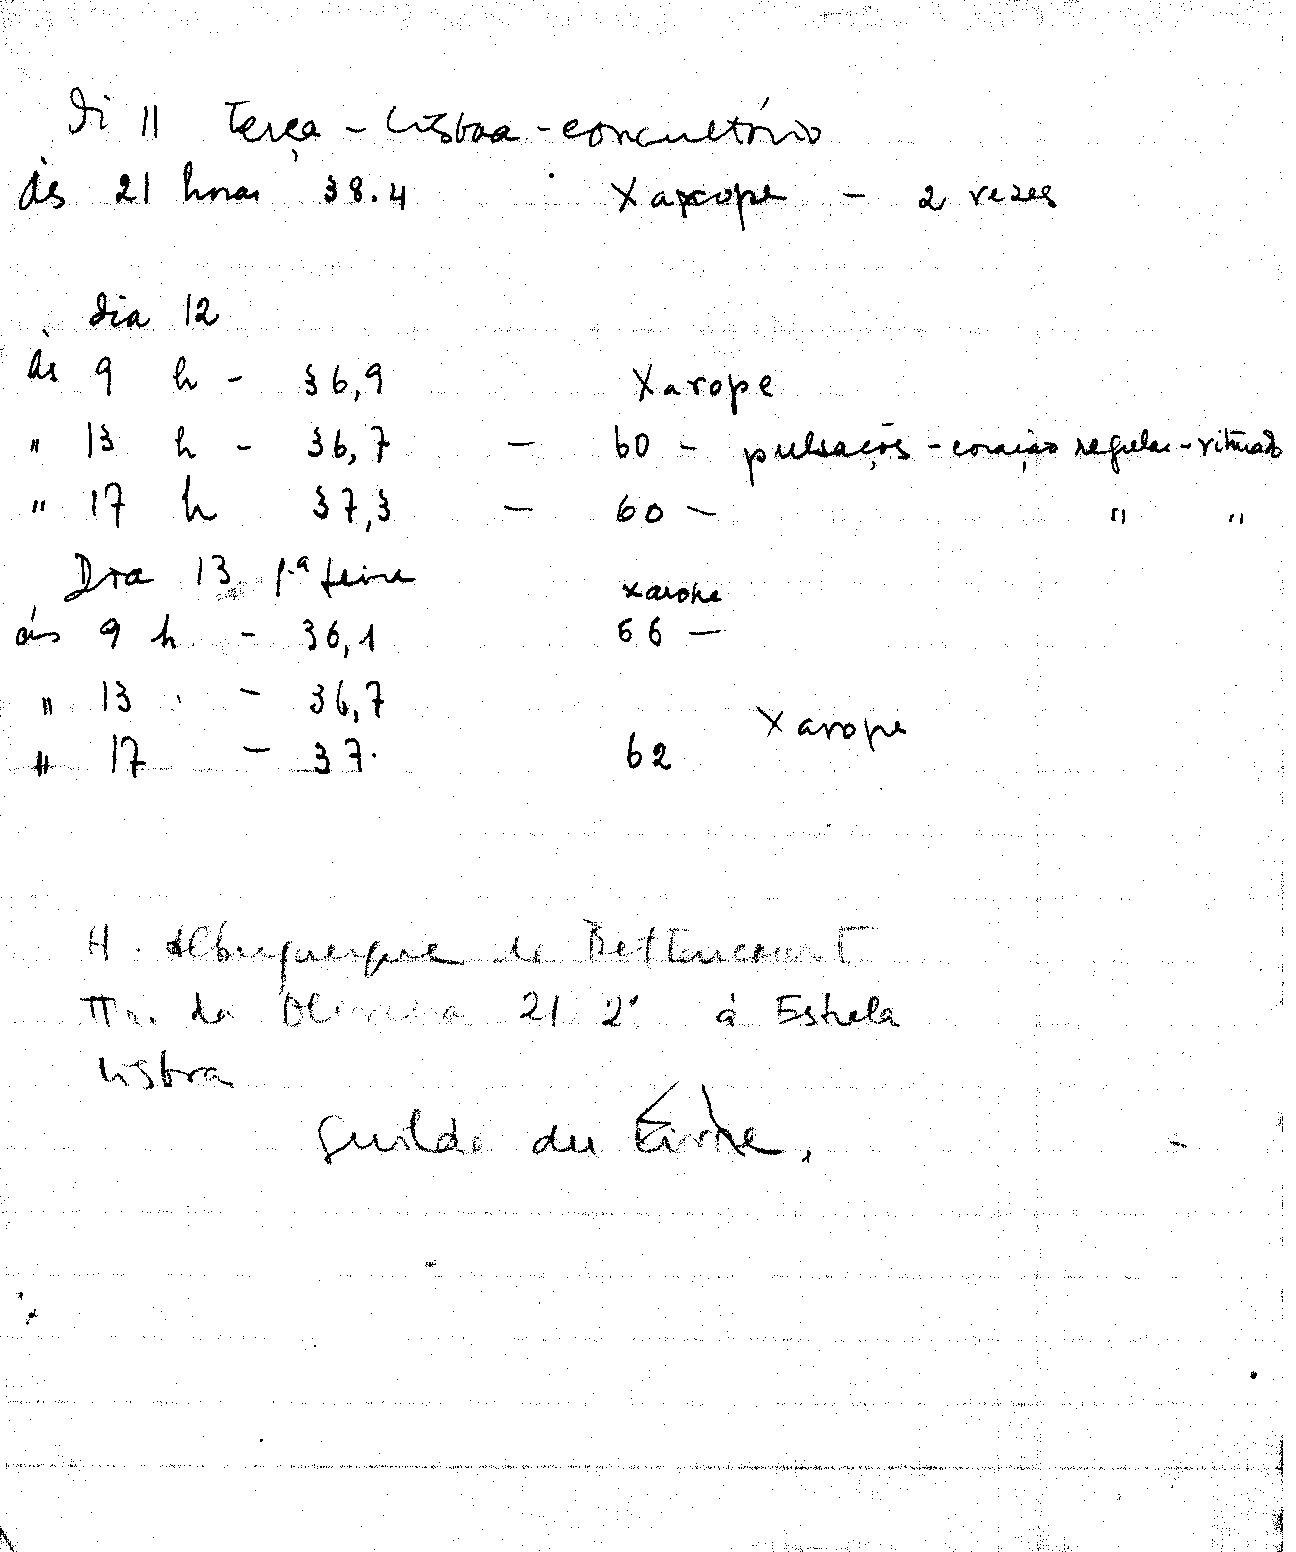 Di 11 Terça - Lisboa - concultório
às 21 horas 38.4 Xarope - 2 vezes
dia 12
às 9 h - 36,9 Xarope
" 13 h - 36,7 - 60 - pulsaçõs - coração regular - ritmado
" 17 h 37,3 - 60 - " "
Dia 13 5.ª feira xarope
ás 9 h - 36,1 66 -
" 13 - 36,7
" 17 - 37. 62 Xarope
H. Albuquerque de Bettencourt
Tr. da Oliveira 21 2º á Estrela
Lisboa
Guilde du Livre,